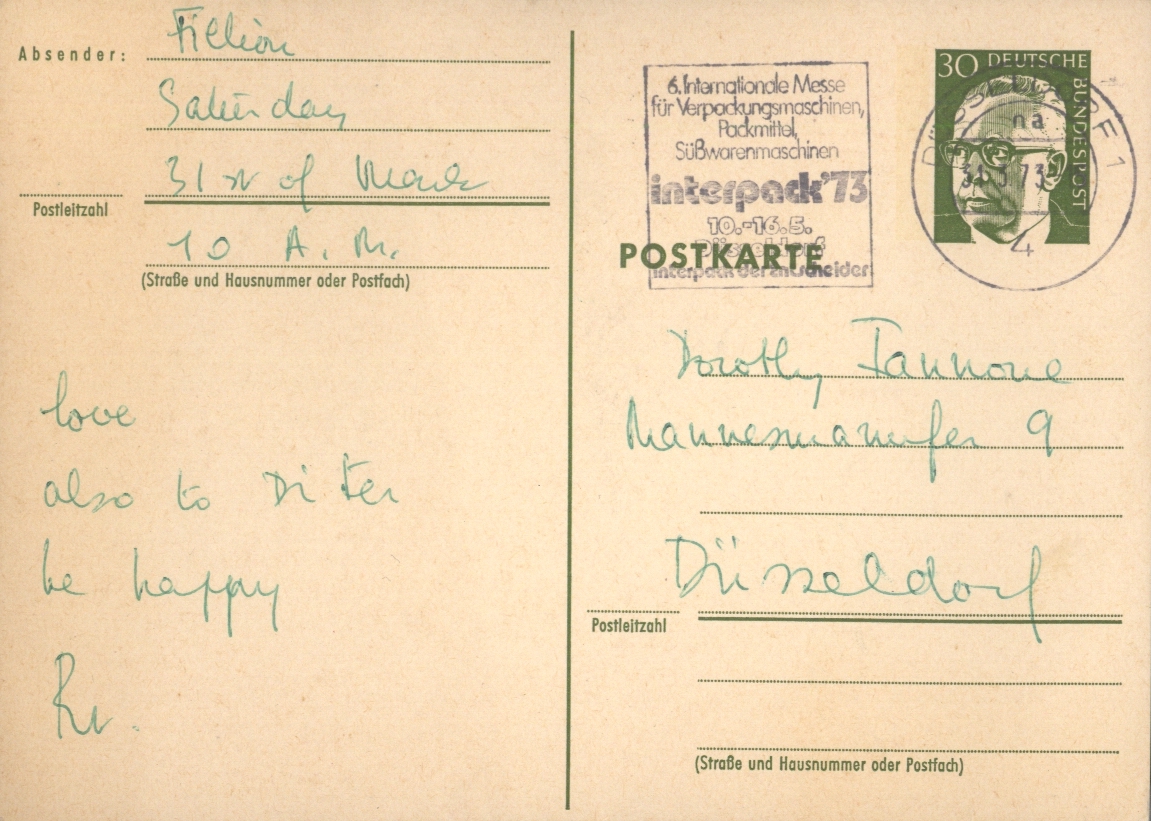 Absender:
Fillion
Saturday
31 st of March
Postleitzahl
10 A. M.
(Straße und Hausnummer oder Postfach)
love
also to Diter
be happy
6. Internationale Messe
für Verpackungsmaschinen,
Packmittel,
Süßwarenmaschinen
interpack'73
10.-16.5.
Düsseldorf
interpack der Entscheider
POSTKARTE
30 DEUTSCHE
BUNDESPOST
DÜSSELDORF 1
na
31.3.73
4
Dorothy Iannone
Mannesmannufer 9
Düsseldorf
Postleitzahl
(Straße und Hausnummer oder Postfach)